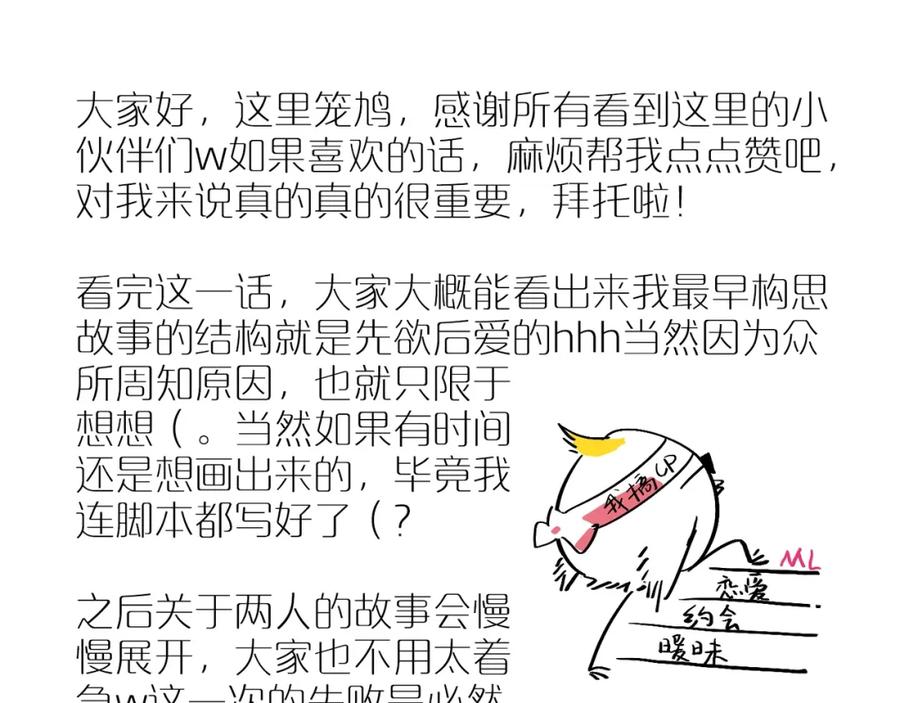 大家好，这里笼鸠，感谢所有看到这里的小
伙伴们w如果喜欢的话，麻烦帮我点点赞吧，
对我来说真的真的很重要，拜托啦！
看完这一话，大家大概能看出来我最早构思
故事的结构就是先欲后爱的hhh当然因为众
所周知原因，也就只限于
想想（。当然如果有时间
还是想画出来的，毕竟我
连脚本都写好了（？
之后关于两人的故事会慢
慢展开，大家也不用太着
急w这一次的失败是必然
我搞CP
ML
恋爱
约会
暧昧